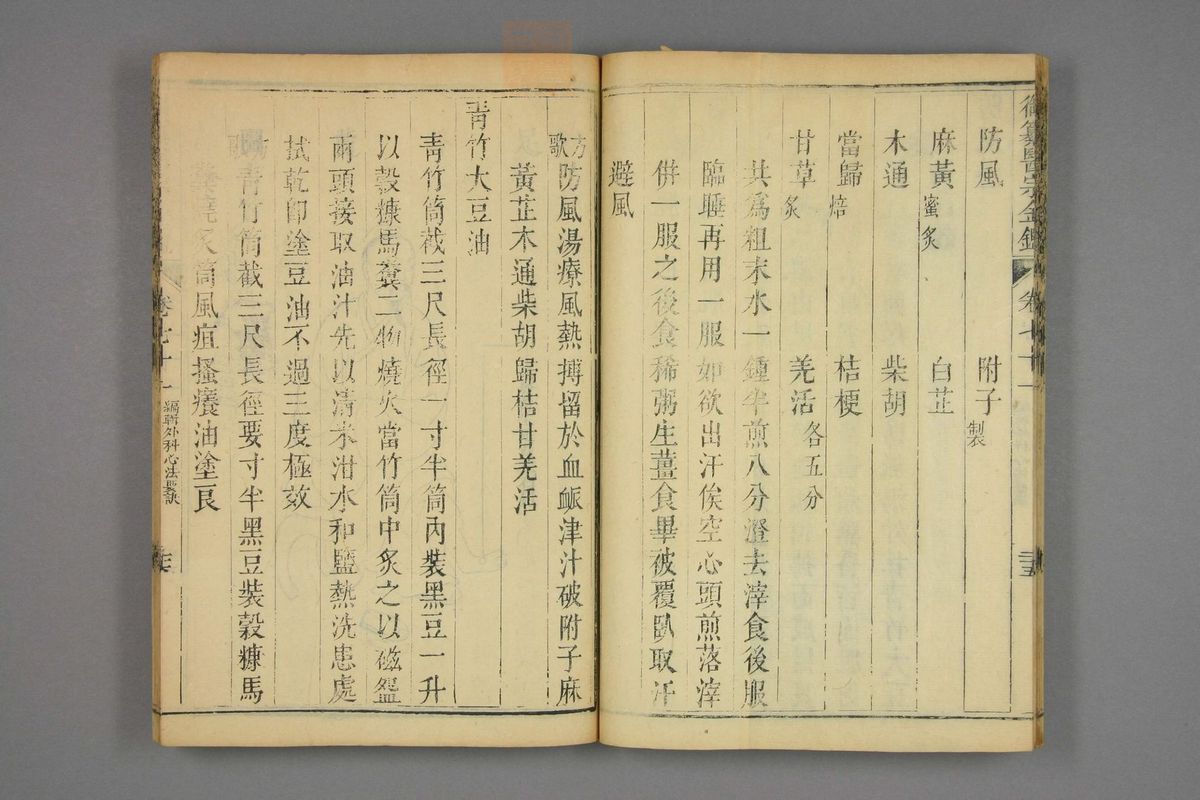 御纂醫宗金鑑 卷七十一 三五
防風 附子製
麻黃蜜炙 白芷
木通 柴胡
當歸焙 桔梗
甘草炙 羌活各五分
共為粗末水一鍾半煎八分澄去滓食後服
臨睡再用一服如欲出汗俟空心頭煎落滓
併一服之後食稀粥生薑食畢被覆臥取汗
避風
方歌 防風湯療風熱搏留於血脈津汁破附子麻
黃芷木通柴胡歸桔甘羌活
青竹大豆油
青竹筒截三尺長徑一寸半筒內裝黑豆一升
以穀糠馬糞二物燒火當竹筒中炙之以磁盌
兩頭接取油汁先以清米泔水和鹽熱洗患處
拭乾即塗豆油不過三度極效
方歌 青竹筒截三尺長徑要寸半黑豆裝穀糠馬
糞燒炙筒風疽搔癢油塗良
卷七十一 編輯外科心法要訣 三六